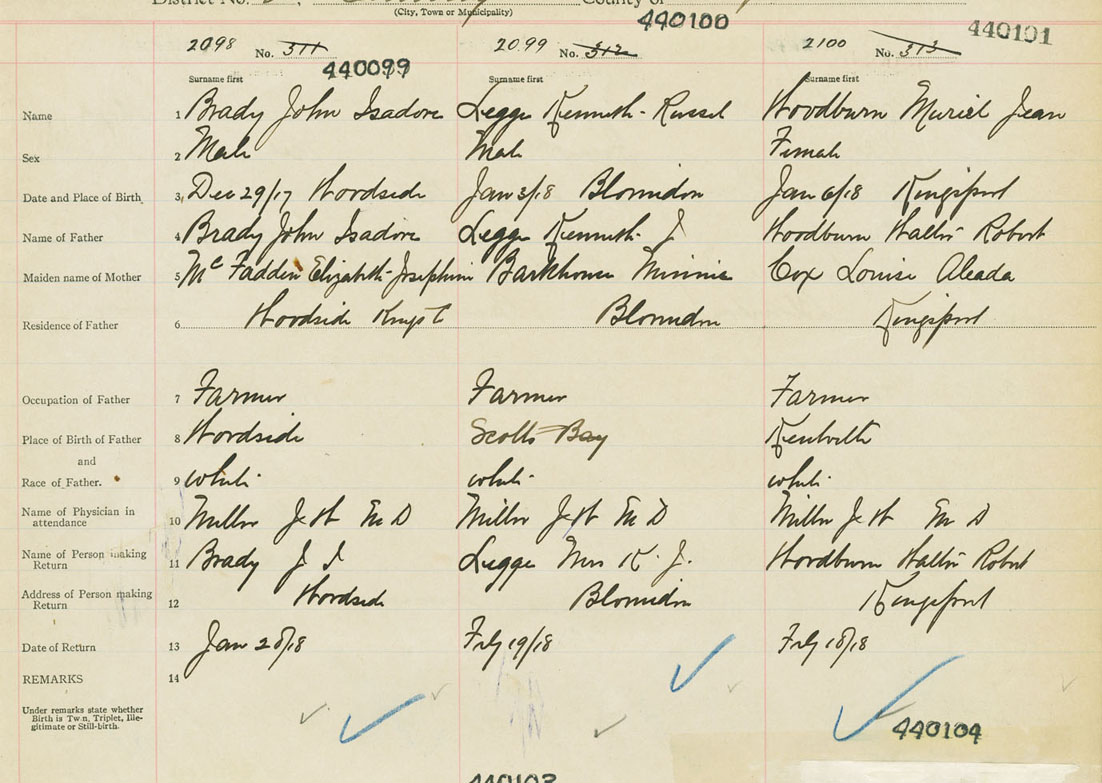 District No. County of
(City, Town or Municipality)
440100
440101
2098 No. 311 2099 No. 312 2100 No. 313
440099
Surname first Surname first Surname first
Name 1 Brady John Isadore Legge Kenneth Russel Woodburn Muriel Jean
Sex 2 Male Male Female
Date and Place of Birth 3 Dec 29/17 Woodside Jan 3/18 Blomidon Jan 6/18 Kingsport
Name of Father 4 Brady John Isadore Legge Kenneth J Woodburn Walter Robert
Maiden name of Mother 5 Mc Fadden Elizabeth Josephine Barkhouse Minnie Cox Louise Aleada
Residence of Father 6 Woodside Kings Blomidon Kingsport
Occupation of Father 7 Farmer Farmer Farmer
Place of Birth of Father 8 Woodside Scotts Bay Kentville
and
Race of Father. 9 white white white
Name of Physician in
attendance 10 Miller M D Miller M D Miller M D
Name of Person making
Return 11 Brady J I Legge Mrs K. J. Woodburn Walter Robert
Address of Person making
Return 12 Woodside Blomidon Kingsport
Date of Return 13 Jan 28/18 Feby 19/18 Feby 18/18
REMARKS 14
Under remarks state whether
Birth is Twin, Triplet, Ille-
gitimate or Still-birth.
440104
440103